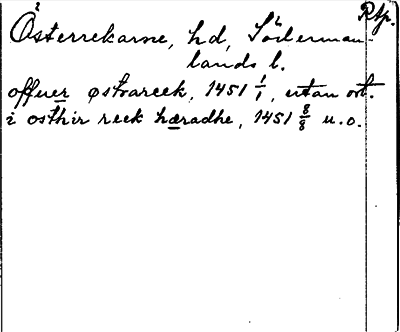 Rtp.
Österrekarne, hd, Söderman-
lands l.
offuer østvareek, 1451 1/1, utan ort.
i osthir reek hæradhe, 1451 8/8 u.o.